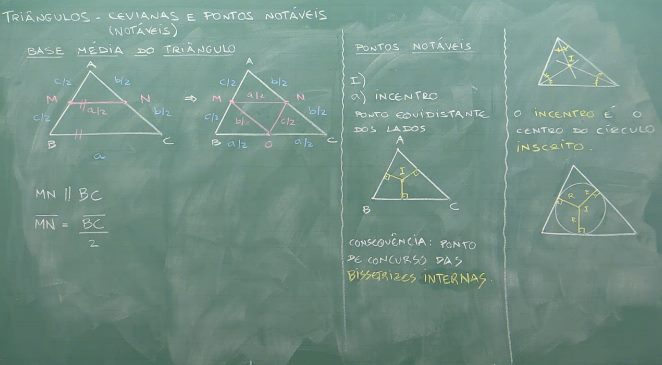 TRIÂNGULOS - CEVIANAS E PONTOS NOTÁVEIS
(NOTÁVEIS)
BASE MÉDIA DO TRIÂNGULO
A
c/2 b/2
M N
a/2
c/2 b/2
B C
a
⇒
A
c/2 b/2
M a/2 N
b/2 c/2 b/2
B a/2 O a/2 C
MN || BC
MN = BC
2
PONTOS NOTÁVEIS
I)
a) INCENTRO
PONTO EQUIDISTANTE
DOS LADOS
A
I
B C
CONSEQUÊNCIA: PONTO
DE CONCURSO DAS
BISSETRIZES INTERNAS.
I
O INCENTRO É O
CENTRO DO CÍRCULO
INSCRITO.
R R
I
R